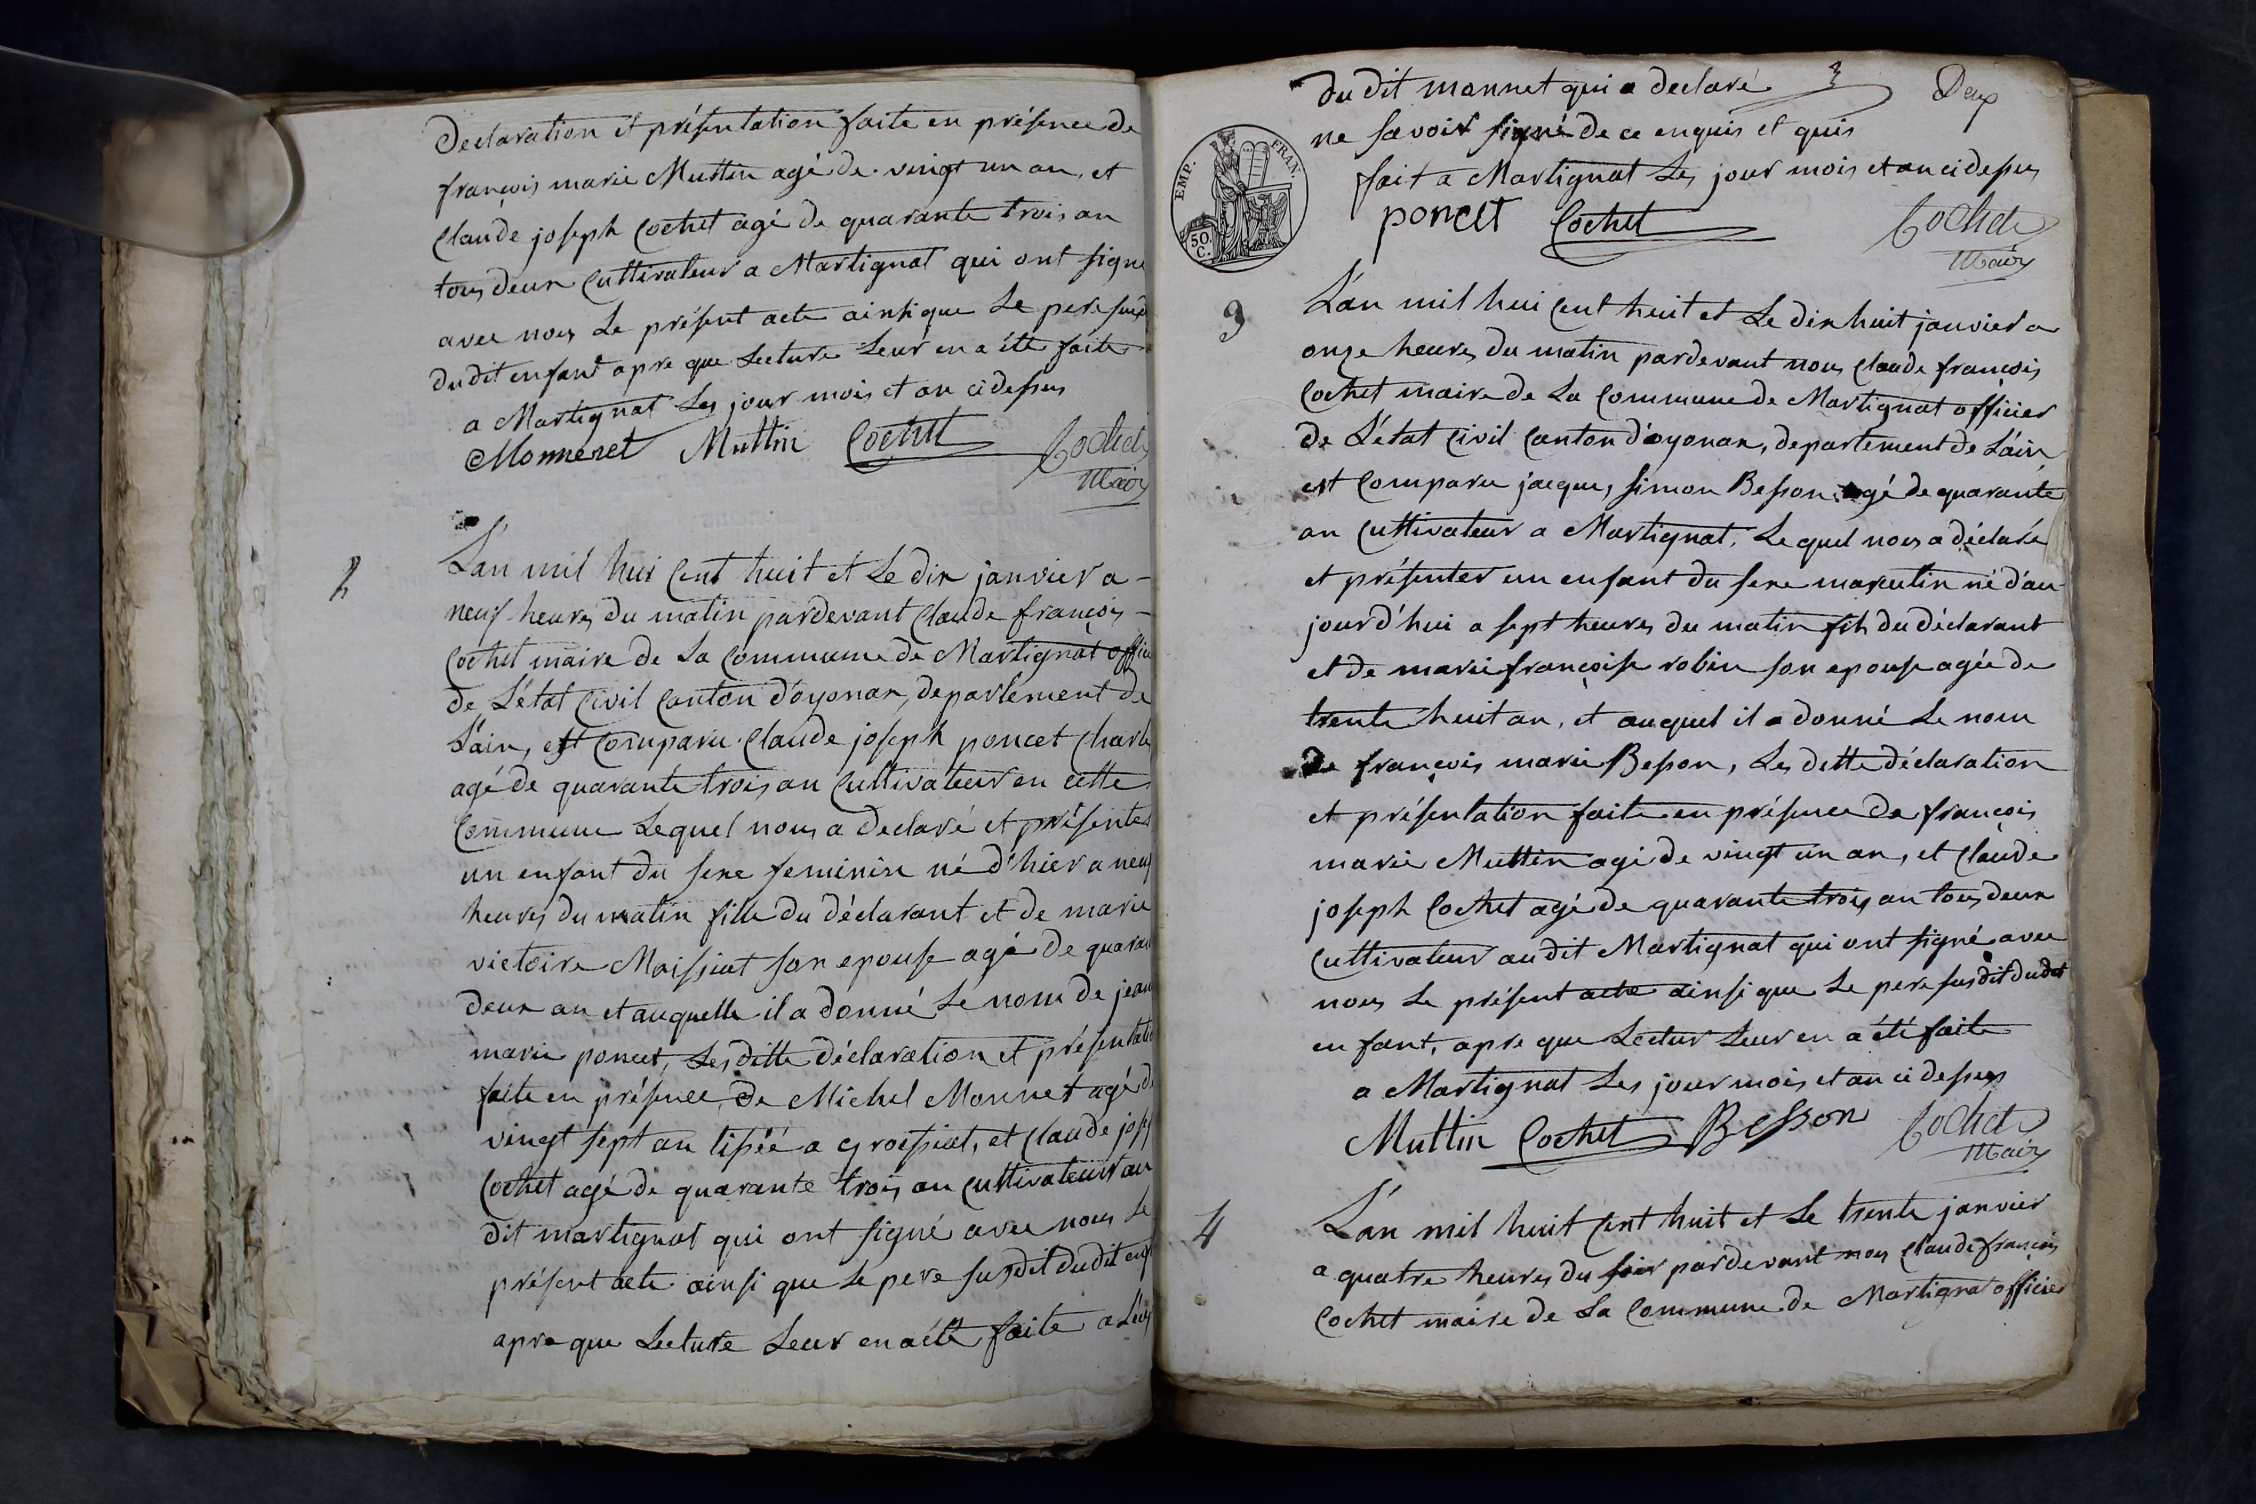 Declaration et présentation faite en présence de
françois marie Muttin agé de vingt un an, et
Claude joseph Cochet agé de quarante trois an
tous deux Cultivateur a Martignat qui ont signe
avec nous Le présent acte ainsi que Le pere susd
du dit enfant apre que Lecture Leur en a été faite
a Martignat Les jour mois et an ci dessus
Monneret Muttin Cochet Cochet
Maire
2
L'an mil hui Cent huit et Le dix janvier a
neuf heures du matin pardevant Claude françois
Cochet maire de La Commune de Martignat offici
de L'état Civil Canton d'oyonax, departement de
L'ain, est Comparu Claude joseph poncet Charle
agé de quarante trois an Cultivateur en cette
Commune Lequel nous a declaré et présenter
un enfant du sexe feminin né d'hier a neuf
heures du matin fille du déclarant et de marie
victoire Moissiat son epouse agé de quaran
deux an et auquelle il a donné Le nom de jean
marie poncet, Les ditte déclaration et présentatio
faite en présence, de Michel Monnet agé de
vingt sept an tissié a Groissiat, et Claude josep
Cochet agé de quarante trois an Cultivateur au
dit martignat qui ont signé avec nous Le
présent acte ainsi que Le pere susdit dudit enf
apre que Lecture Leur en a été faite a L'ex
du dit monnet qui a declaré
Deux
ne savoir signé de ce enquis et quis
fait a Martignat Les jour mois et an ci dessus
EMP. FRAN.
50.
C.
poncet Cochet Cochet
Maire
3
L'an mil hui Cent huit et Le dix huit janvier a
onze heures du matin pardevant nous Claude françois
Cochet maire de La Commune de Martignat officier
de L'état Civil Canton d'oyonax, departement de L'ain
est Comparu jacque, simon Besson agé de quarante
an Cultivateur a Martignat. Le quel nous a déclaré
et présenter un enfant du sexe masculin né d'au-
jourd'hui a sept heures du matin fils du déclarant
et de marie françoise robin son epouse agée de
trente huit an, et auquel il a donné Le nom
de françois marie Besson, Les dette déclaration
et présentation faite en présence de françois
marie Muttin agé de vingt un an, et Claude
joseph Cochet agé de quarante trois an tous deux
Cultivateur au dit Martignat qui ont signé avec
nous Le présent acte ainsi que Le pere susdit dudit
enfant, apre que Lectur Leur en a été faite
a Martignat Les jour mois et an ci dessus
Muttin Cochet Besson Cochet
Maire
4
L'an mil huit Cent huit et Le trente janvier
a quatre heures du soir pardevant nous Claude françois
Cochet maire de La Commune de Martignat officier